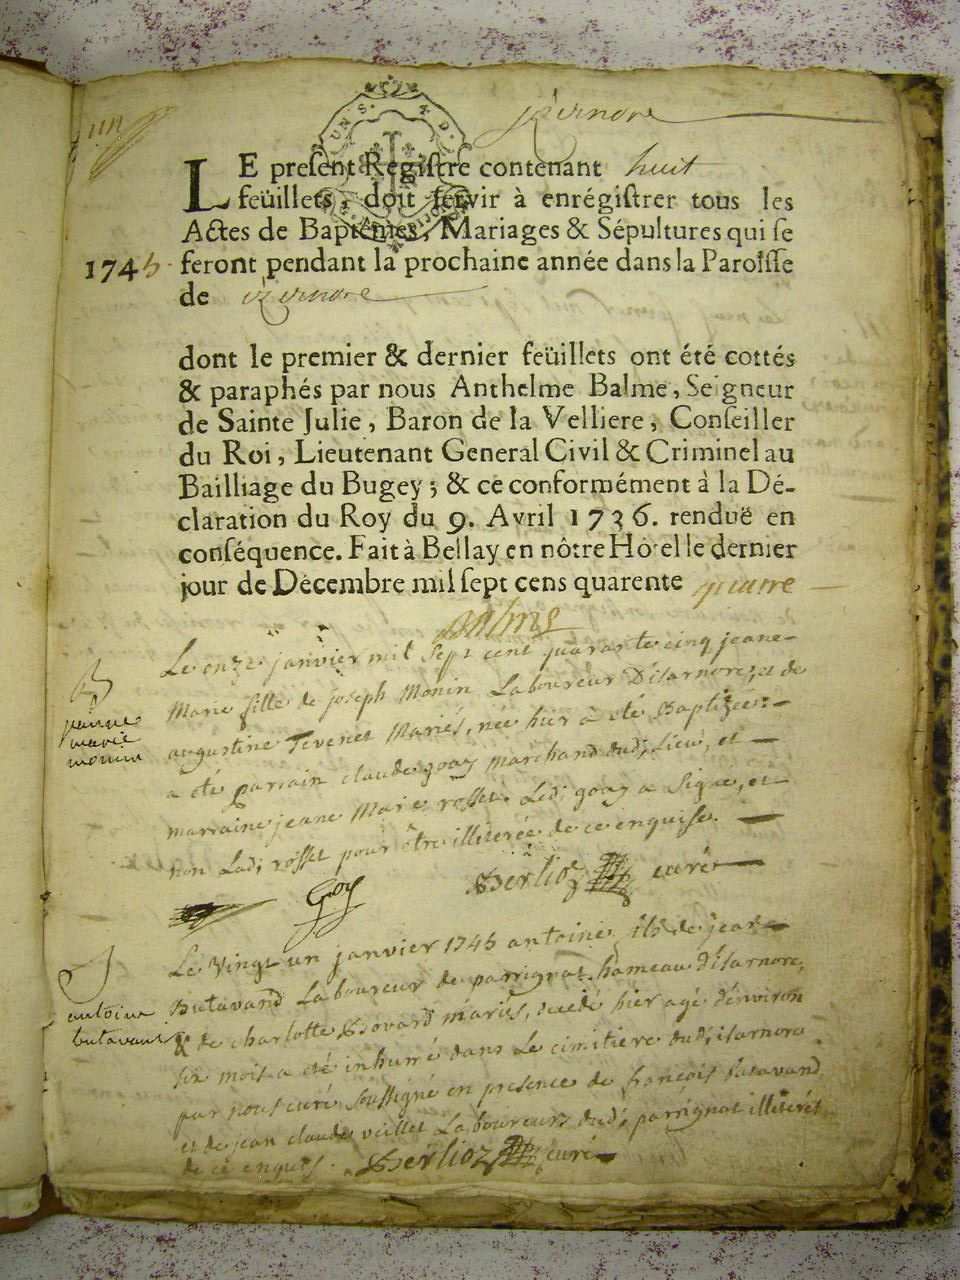 izernore
LE preſent Regiſtre contenant huit
feüillets, doit ſervir à enrégiſtrer tous les
Actes de Baptêmes, Mariages & Sépultures qui ſe
1745 feront pendant la prochaine année dans la Paroiſſe
de izernore
dont le premier & dernier feüillets ont été cottés
& paraphés par nous Anthelme Balme, Seigneur
de Sainte Julie, Baron de la Velliere, Conſeiller
du Roi, Lieutenant General Civil & Criminel au
Bailliage du Bugey; & ce conformément à la Dé-
claration du Roy du 9. Avril 1736. renduë en
conſéquence. Fait à Bellay en nôtre Hôtel le dernier
jour de Décembre mil ſept cens quarente quatre
Balme
Le onze janvier mil sept cent quarante cinq jeane
Marie fille de joseph Monin Laboureur D'isarnore, et de
augustine Tevenet Mariés, née hier à été Baptizée:
a été parrain claude goay marchand dud; Lieu, et
marraine jeane Marie rosset. Led; goay a Signé, et
non Lad; rosset pour être illiterée de ce enquise.
jeanne
marie
monin
Goy
Berlioz curé
Le Vingt un janvier 1745 antoine fils de jean
Butavand Laboureur de parrignat hameau d'isarnore,
& de charlotte Bovard mariés, decedé hier agé d'environ
six mois a été inhumé dans Le cimitiere dud; isarnore
par nous curé Soussigné en presence de francois butavand
et de jean claude veillet Laboureurs dud; parrignat illiterés
de ce enquis. Berlioz curé
antoine
butavant